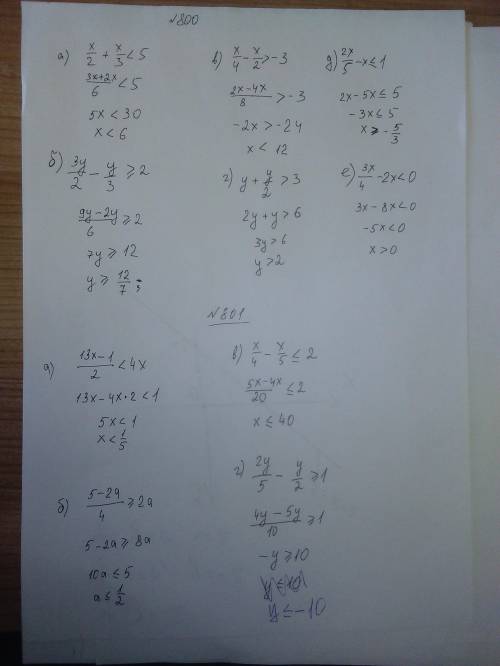 №800
а) x/2 + x/3 < 5
3x+2x/6 < 5
5x < 30
x < 6
б) 3y/2 - y/3 ⩾ 2
9y-2y/6 ⩾ 2
7y ⩾ 12
y ⩾ 12/7 ;
в) x/4 - x/2 > -3
2x-4x/8 > -3
-2x > -24
x < 12
г) y + y/2 > 3
2y+y > 6
3y > 6
y > 2
д) 2x/5 - x ≤ 1
2x-5x ≤ 5
-3x ≤ 5
x ⩾ -5/3
е) 3x/4 - 2x < 0
3x-8x < 0
-5x < 0
x > 0
№801
а) 13x-1/2 < 4x
13x-4x·2 < 1
5x < 1
x < 1/5
б) 5-2a/4 ⩾ 2a
5-2a ⩾ 8a
10a ≤ 5
a ≤ 1/2
в) x/4 - x/5 ≤ 2
5x-4x/20 ≤ 2
x ≤ 40
г) 2y/5 - y/2 ⩾ 1
4y-5y/10 ⩾ 1
-y ⩾ 10
y ≤ -10